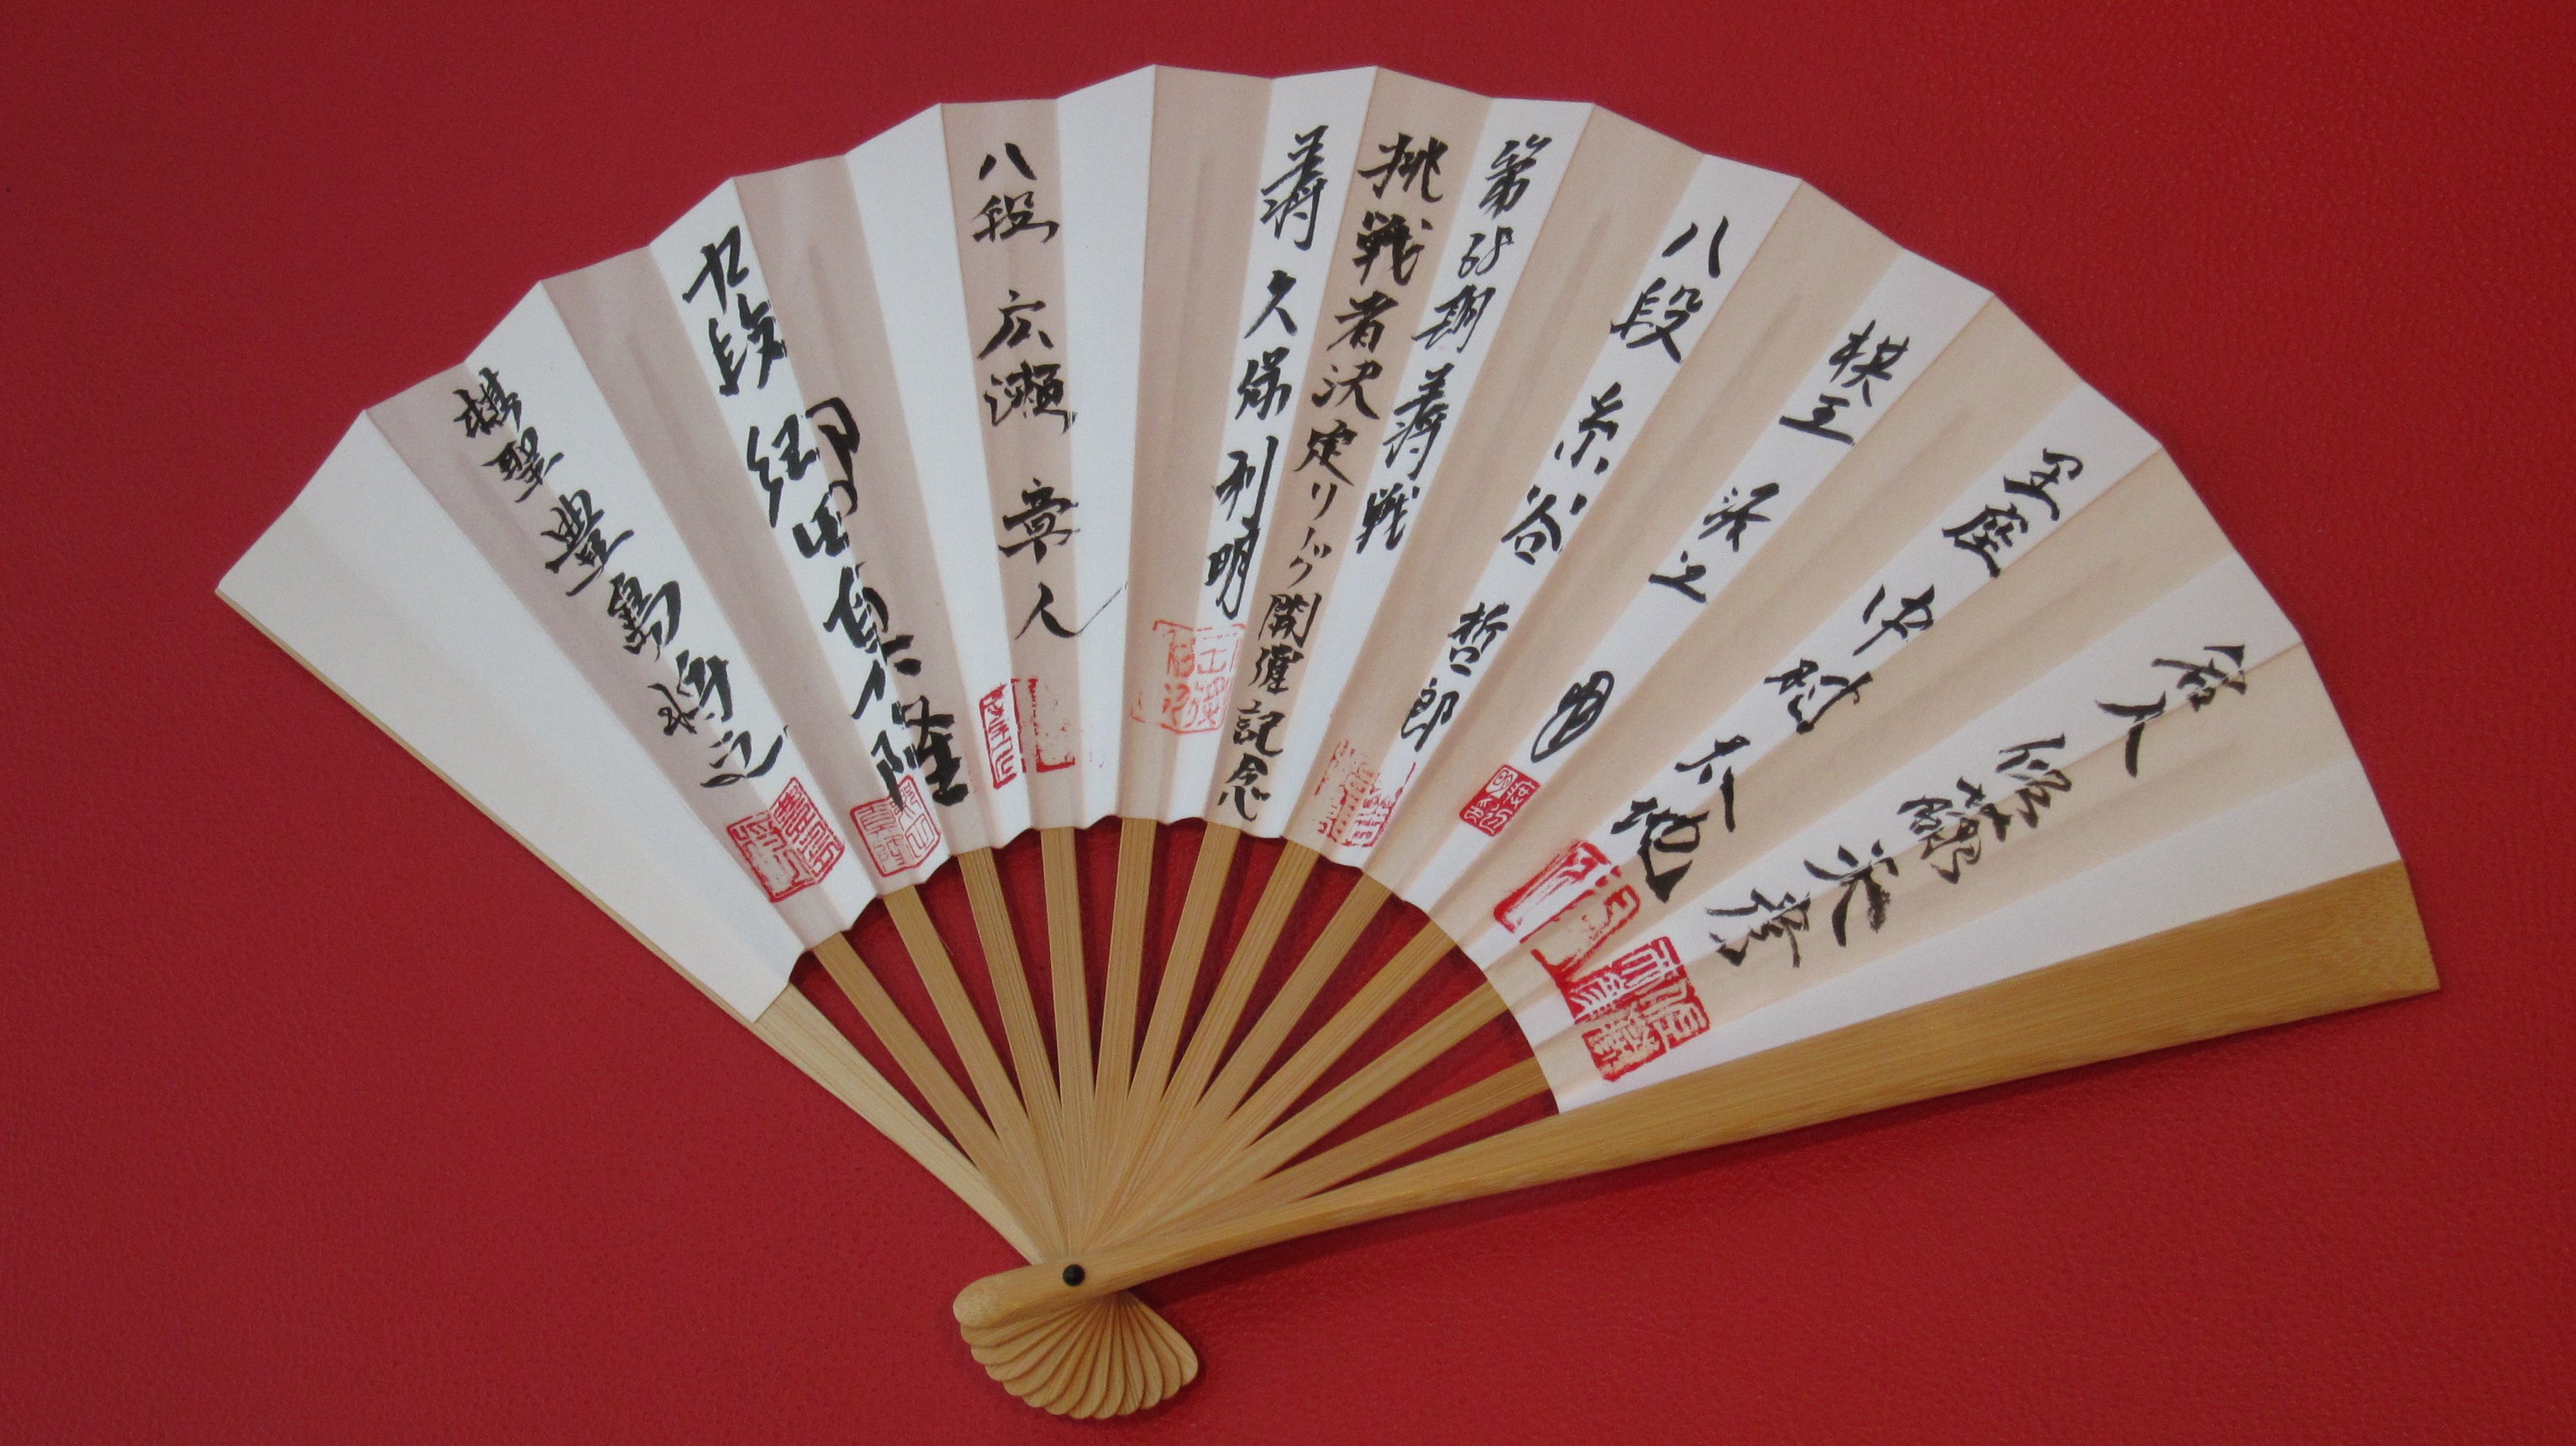 名人 佐藤天彦
王座 中村太地
棋王 渡辺 明
八段 糸谷 哲郎
第68期 王将戦
挑戦者決定リーグ開催記念
王将 久保利明
八段 広瀬 章人
九段 郷田真隆
棋聖 豊島将之